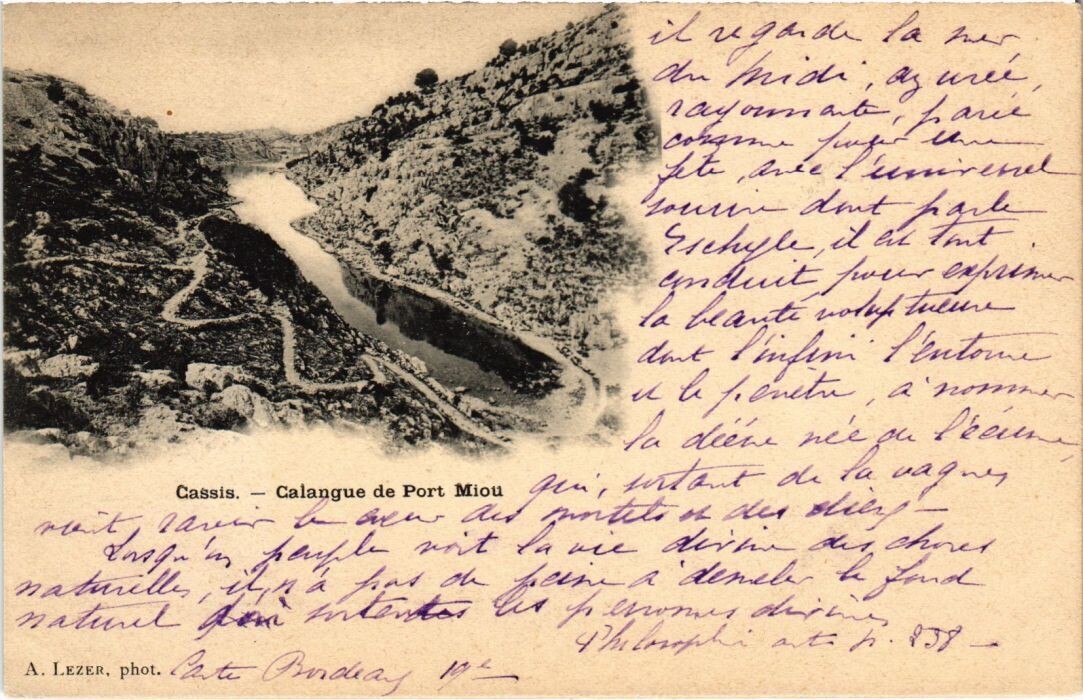 il regarde la mer
du midi, azurée,
rayonnante, parée
comme pour une
fête, avec l'universel
sourire dont parle
Eschyle, il est tout
conduit pour exprimer
la beauté voluptueuse
dont l'infini l'entoure
et le pénètre, à nommer
la déesse née de l'écume
qui, sortant de la vagues
vient ravir le cœur des mortels et des dieux -
Lorsqu'un peuple voit la vie divine des choses
naturelles, il n'a pas de peine à démêler le fond
naturel d'où sortent les personnes divines
Philosophie art p. 238 -
Carte Bordeaux 19e
Cassis. — Calangue de Port Miou
A. LEZER, phot.